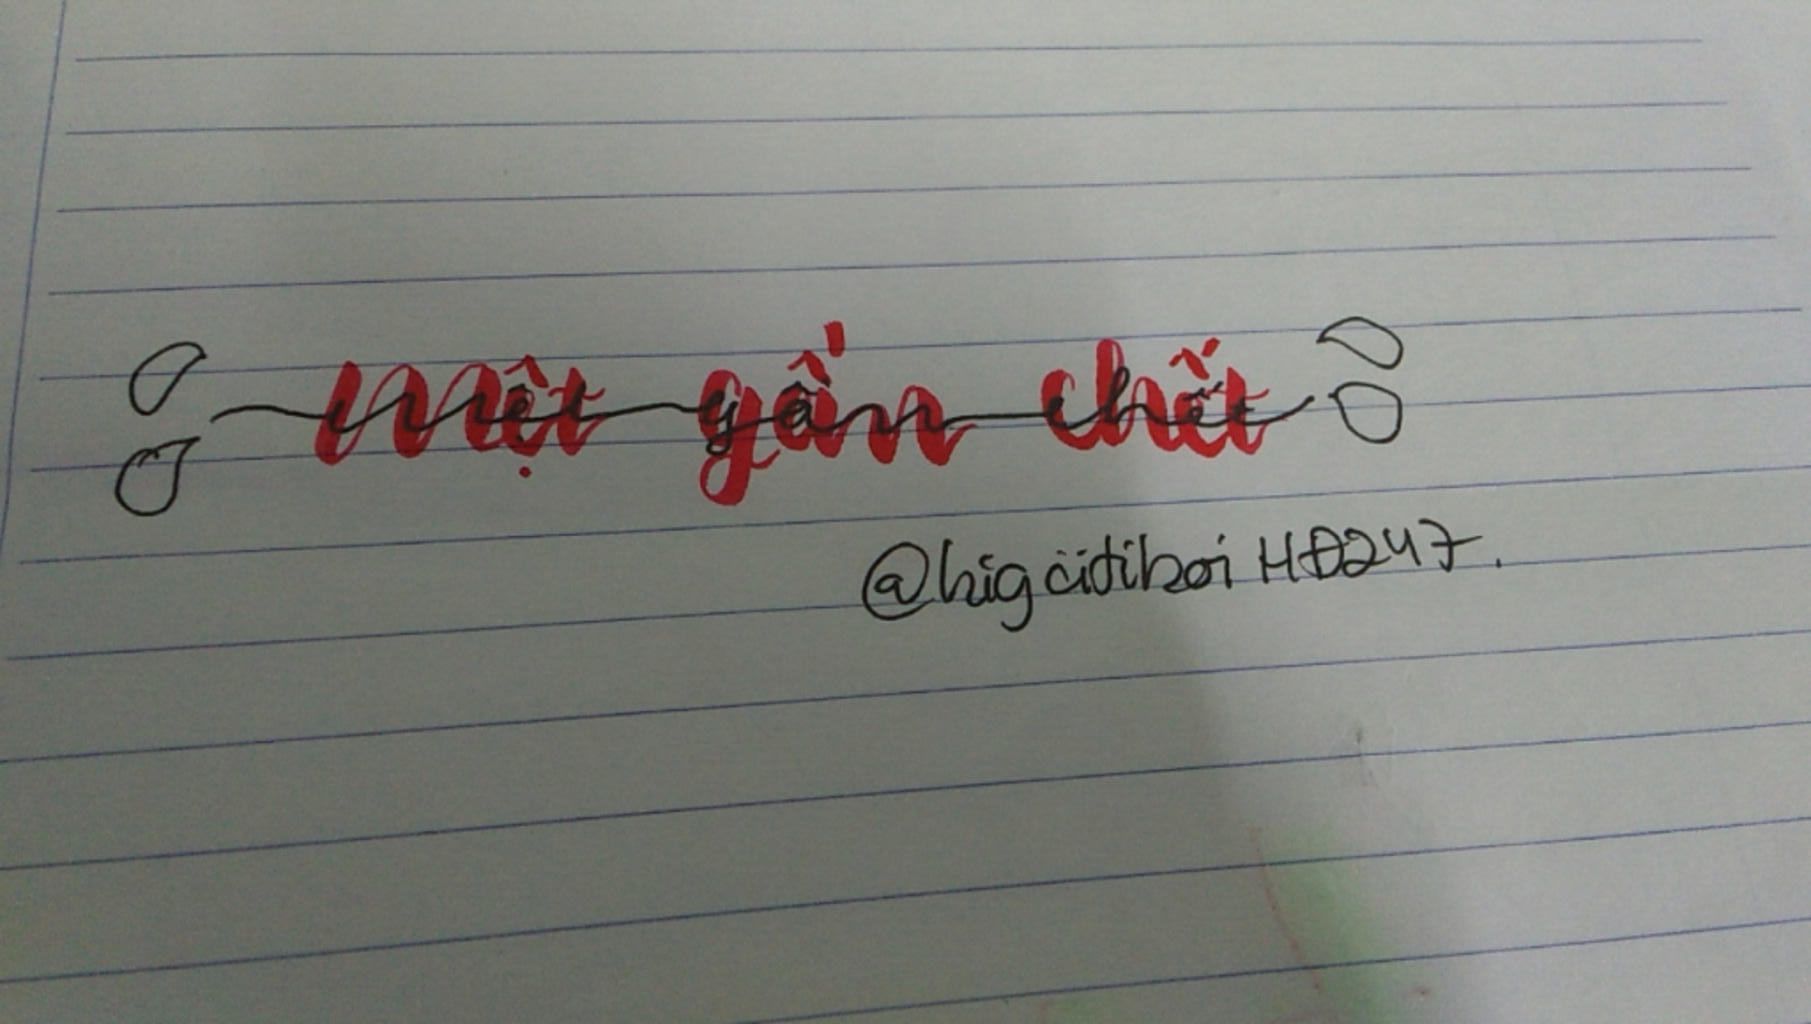 Mệt gần chết
@bigcitiboi HĐ247.